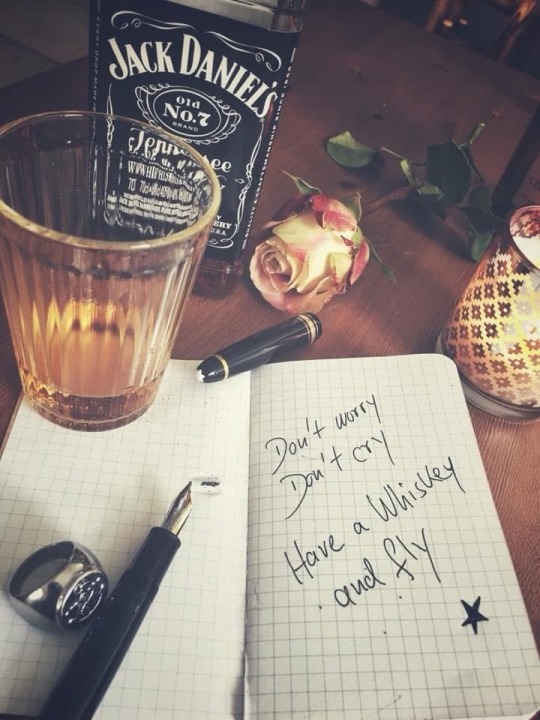 JACK DANIEL'S
Old
No.7
BRAND
Tennessee
Don't worry
Don't cry
Have a Whiskey
and fly